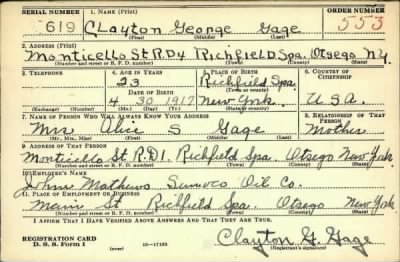 SERIAL NUMBER 1. NAME (Print) ORDER NUMBER
619 Clayton George Gage 553
(First) (Middle) (Last)
2. ADDRESS (Print)
Monticello St RD4 Richfield Spa. Otsego N.Y.
(Number and street or R. F. D. number) (Town) (County) (State)
3. TELEPHONE 4. AGE IN YEARS 5. PLACE OF BIRTH 6. COUNTRY OF CITIZENSHIP
23 Richfield Spa.
DATE OF BIRTH (Town or county)
4 30 1917 New York. U.S.A.
(Exchange) (Number) (Mo.) (Day) (Yr.) (State or country)
7. NAME OF PERSON WHO WILL ALWAYS KNOW YOUR ADDRESS 8. RELATIONSHIP OF THAT PERSON
Mrs Alice S Gage Mother
(Mr., Mrs., Miss) (First) (Middle) (Last)
9. ADDRESS OF THAT PERSON
Monticello St RD1. Richfield Spa. Otsego New York.
(Number and street or R. F. D. number) (Town) (County) (State)
10. EMPLOYER'S NAME
John Mathews Sunoco Oil Co.
11. PLACE OF EMPLOYMENT OR BUSINESS
Main St Richfield Spa. Otsego New York
(Number and street or R. F. D. number) (Town) (County) (State)
I AFFIRM THAT I HAVE VERIFIED ABOVE ANSWERS AND THAT THEY ARE TRUE.
REGISTRATION CARD
D. S. S. Form 1 (over) 16—17105 Clayton G. Gage
(Registrant's signature)